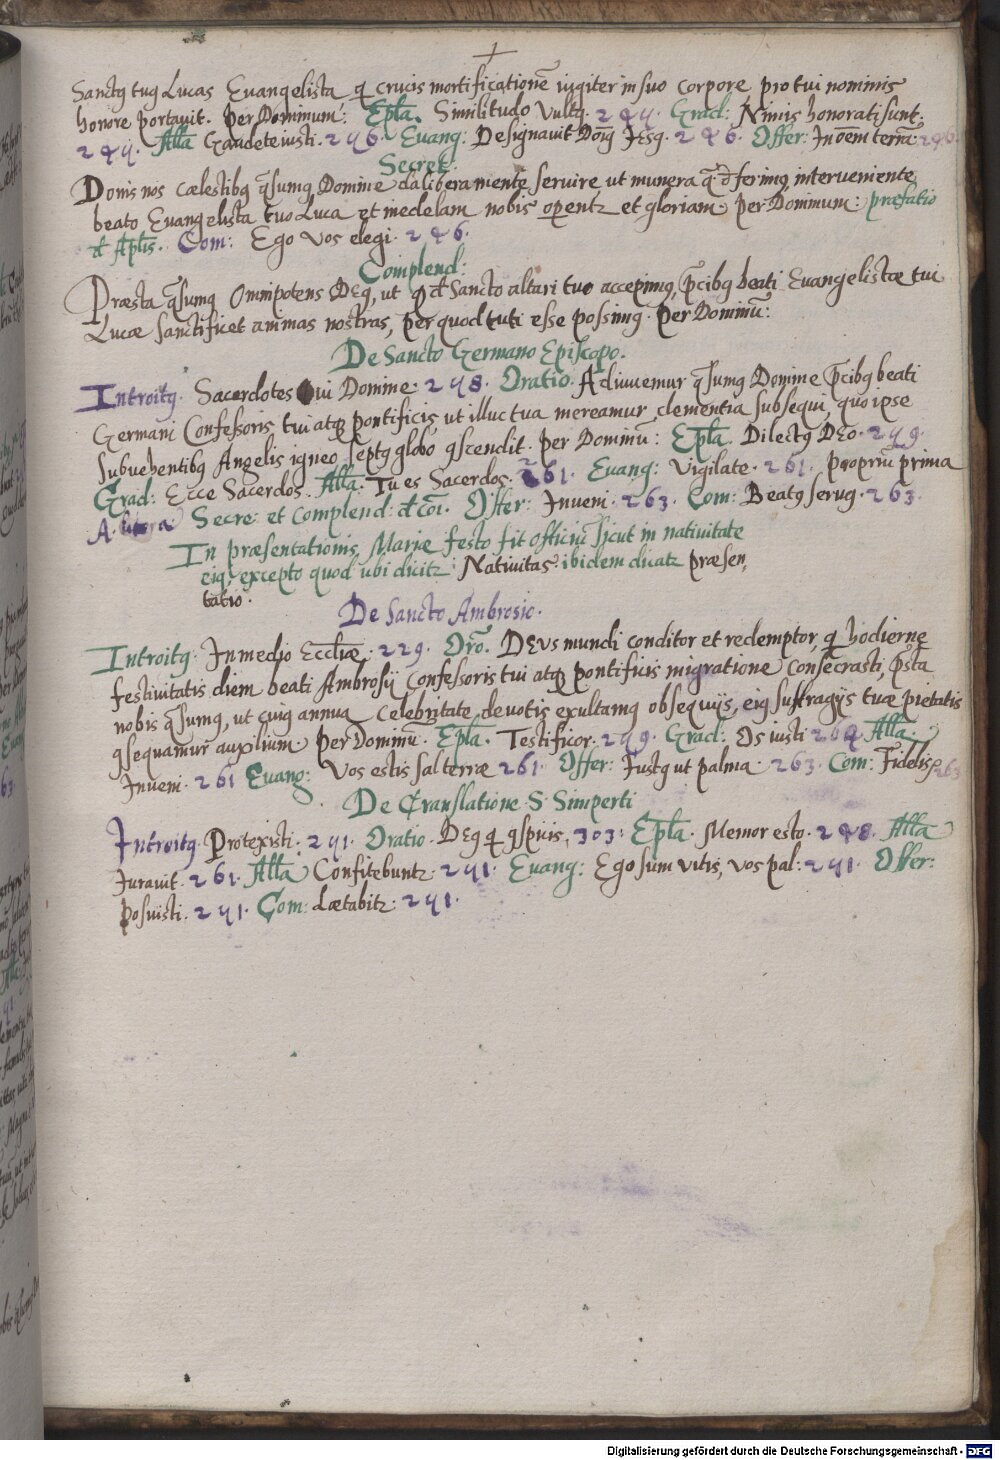 Sanctꝯ tuꝯ Lucas Evangelista q̃ crucis mortificationē iugiter in suo corpore pro tui nominis
honore portavit. Per Dominum: Epl̃a. Similitudo Vultꝯ. 244. Grad: Nimis honorati sunt.
244. All̃a Gaudete iusti. 246. Evang: Designavit Dom̃ꝯ Jesꝯ. 246. Offer: In oēm terrā. 246
Secret:
Donis nos cælestibꝯ q̃sumꝯ Domine da libera mente servire ut munera q̃ dferimꝯ, interveniente
beato Evangelista tuo Luca et medelam nobis operentz et gloriam. Per Dominum: præfatio
d̃ Aplĩs. Com: Ego vos elegi. 246.
Complend:
Præsta q̃sumꝯ Omnipotens Deꝯ, ut q̃ d̃ Sancto altari tuo accepimꝯ, p̃cibꝯ beati Evangelistæ tui
Lucæ sanctificet animas nostras, per quod tuti esse possimꝯ. Per Dominū:
De Sancto Germano Episcopo.
Introitꝯ. Sacerdotes tui Domine. 248. Oratio. Adiuvemur q̃sumꝯ Domine p̃cibꝯ beati
Germani Confessoris tui atqꝫ pontificis, ut illuc tua mereamur clementia subsequi, quo ipse
subvehentibꝯ Angelis igneo septꝯ globo ꝯscendit. Per Dominū: Epl̃a. Dilectꝯ Deo. 249.
Grad: Ecce Sacerdos. All̃a. Tu es Sacerdos. 261. Evang: Vigilate. 261. propriū prima
A. litera Secre: et Complend: d̃ coĩ. Offer: Inveni. 263. Com: Beatꝯ servꝯ. 263.
In præsentationis Mariæ festo fit officiū sicut in nativitate
eiꝯ, excepto quod ubi dicitz: Nativitas ibidem dicatz præsen,
tatio.
De Sancto Ambrosio.
Introitꝯ. In medio Eccl̃iæ. 229. Orõ. Deus mundi conditor et redemptor, q̃ hodiernę
festivitatis diem beati Ambrosij Confessoris tui atqꝫ pontificis migratione consecrasti, p̃sta
nobis q̃sumꝯ, ut cuiꝯ annua celebritate devotis exultamꝯ obsequijs, eiꝯ suffragijs tuæ pietatis
ꝯsequamur auxilium. Per Dominū. Epl̃a. Testificor. 249. Grad: Os iusti 204 All̃a.
Inveni. 261 Evang: Vos estis sal terræ 261. Offer: Justꝯ ut palma. 263. Com: Fidelis. 263
De Translatione S. Simperti
Introitꝯ. Protexisti. 241. Oratio. Deꝯ q̃ ꝯspicis, 303: Epl̃a. Memor esto. 248. All̃a
Juravit. 261. All̃a Confitebuntz. 241. Evang: Ego sum vitis, vos pal: 241. Offer:
Posuisti. 241. Com: Lætabitz. 241.
Digitalisierung gefördert durch die Deutsche Forschungsgemeinschaft - DFG